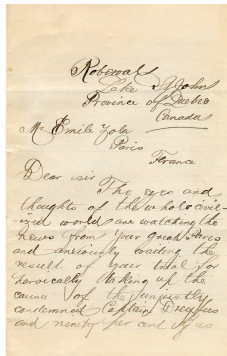 Roberval
Lake St Johns
Province of Quebec
Canada
Mr Emile Zola
Paris
France
Dear sir
The eyes and
thoughts of the whole civil-
ized world are watching the
news from your great Paris
and anxiously waiting the
result of your trial for
heroically taking up the
cause of the unjustly
condemned Captain Dreyfus
and ninety per cent of us